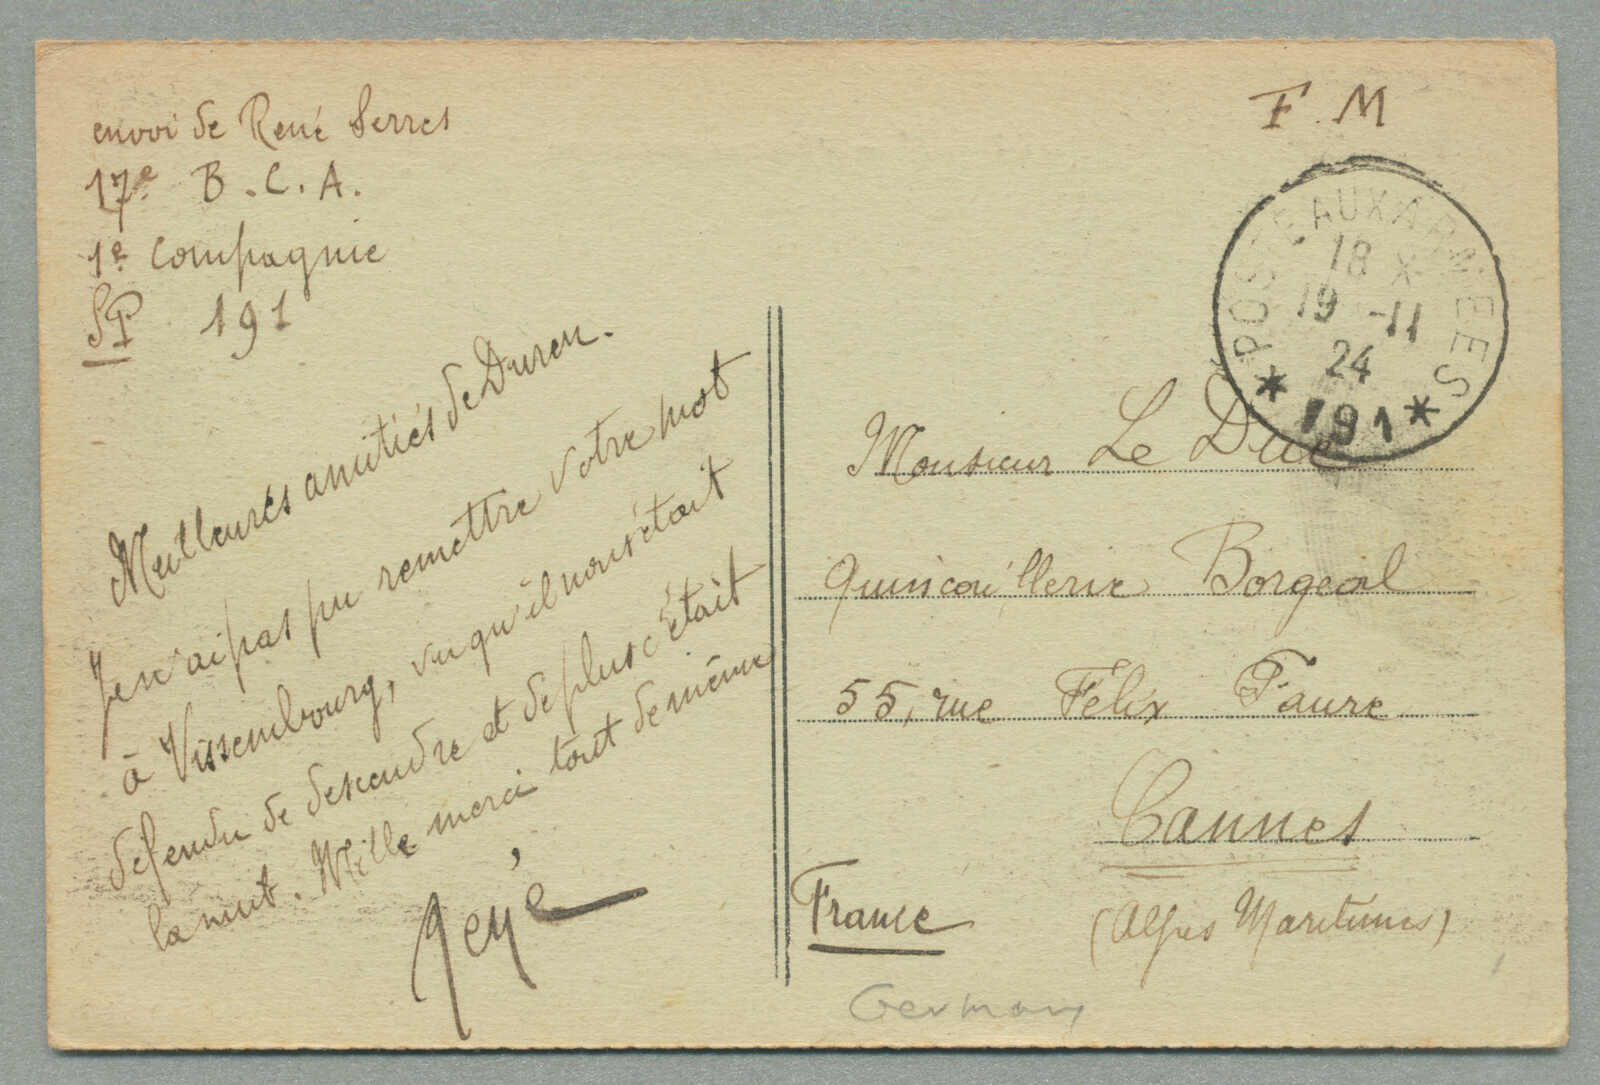 envoi de René Serres
17e B.C.A.
1e Compagnie
SP 191
Meilleures amitiés de Duren.
Je n'ai pas pu remettre votre mot
à Vissembourg, vu qu'il nous était
défendu de descendre et de plus c'était
la nuit. Mille merci tout de même
F.M
POSTE AUX ARMEES
18 X
19 -11
24
* 191 *
Monsieur Le Duc
Quincaillerie Borgeal
55, rue Félix Faure
Cannes
France
(Alpes Maritimes)
Germany